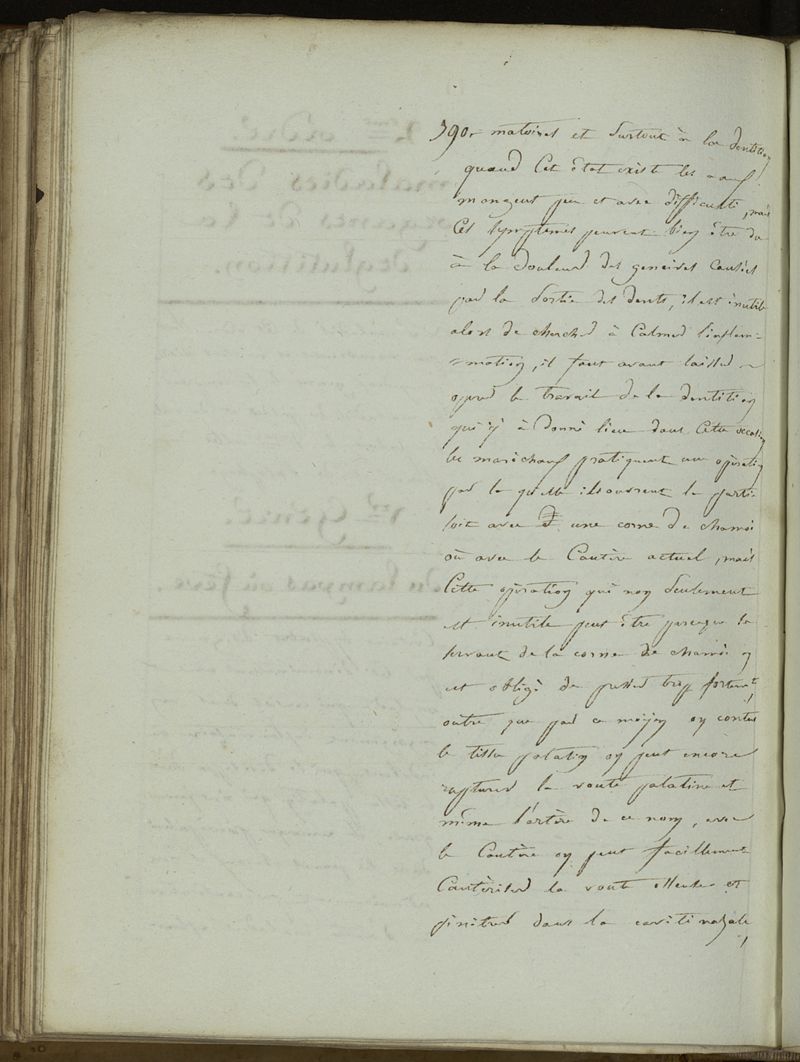 390. matoires et surtout à la dentition
quand cet état existe les anx
mangent peu et avec difficulté, mais
ces symptomes peuvent bien être du
à la douleur des gencives causées
par la sortie des dents, il est inutile
alors de chercher à calmer l'inflam=
=mation, il faut avant laisser
operer le travail de la dentition
qui y à donné lieu dans cette occasion
les marechaux pratiquent une opération
par la quelle ils ouvrent la partie
soit avec une corne de chamois
où avec le Cautère actuel, mais
Cette opération qui non seulement
est inutile peut être parceque se
servant de la corne de chamois on
est obligé de passer trop fortemt
outre que par ce moyen on contus
le tissu palatin on peut encore
rapturer la voute palatine et
même l'artère de ce nom, avec
le Cautère on peut facillement
Cautériser la voute et
pénétrer dans la cavité nazale,
2me ordre.
maladies des
organes de la
deglutition.
1er Genre.
du lampas où fève.